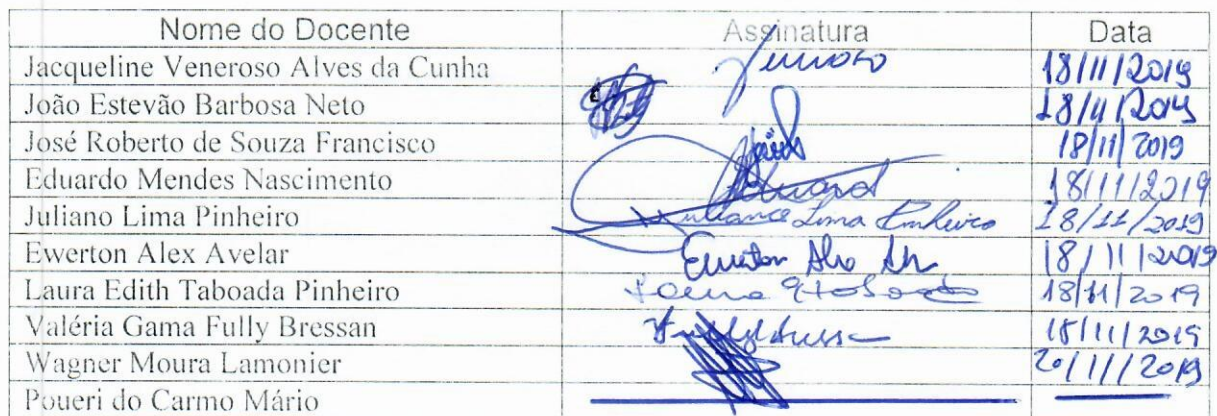 Nome do Docente Assinatura Data
Jacqueline Veneroso Alves da Cunha 18/11/2019
João Estevão Barbosa Neto 18/11/2019
José Roberto de Souza Francisco 18/11/2019
Eduardo Mendes Nascimento Eduardo 18/11/2019
Juliano Lima Pinheiro Juliano Lima Pinheiro 18/11/2019
Ewerton Alex Avelar 18/11/2019
Laura Edith Taboada Pinheiro 18/11/2019
Valéria Gama Fully Bressan 18/11/2019
Wagner Moura Lamonier 20/11/2019
Poueri do Carmo Mário